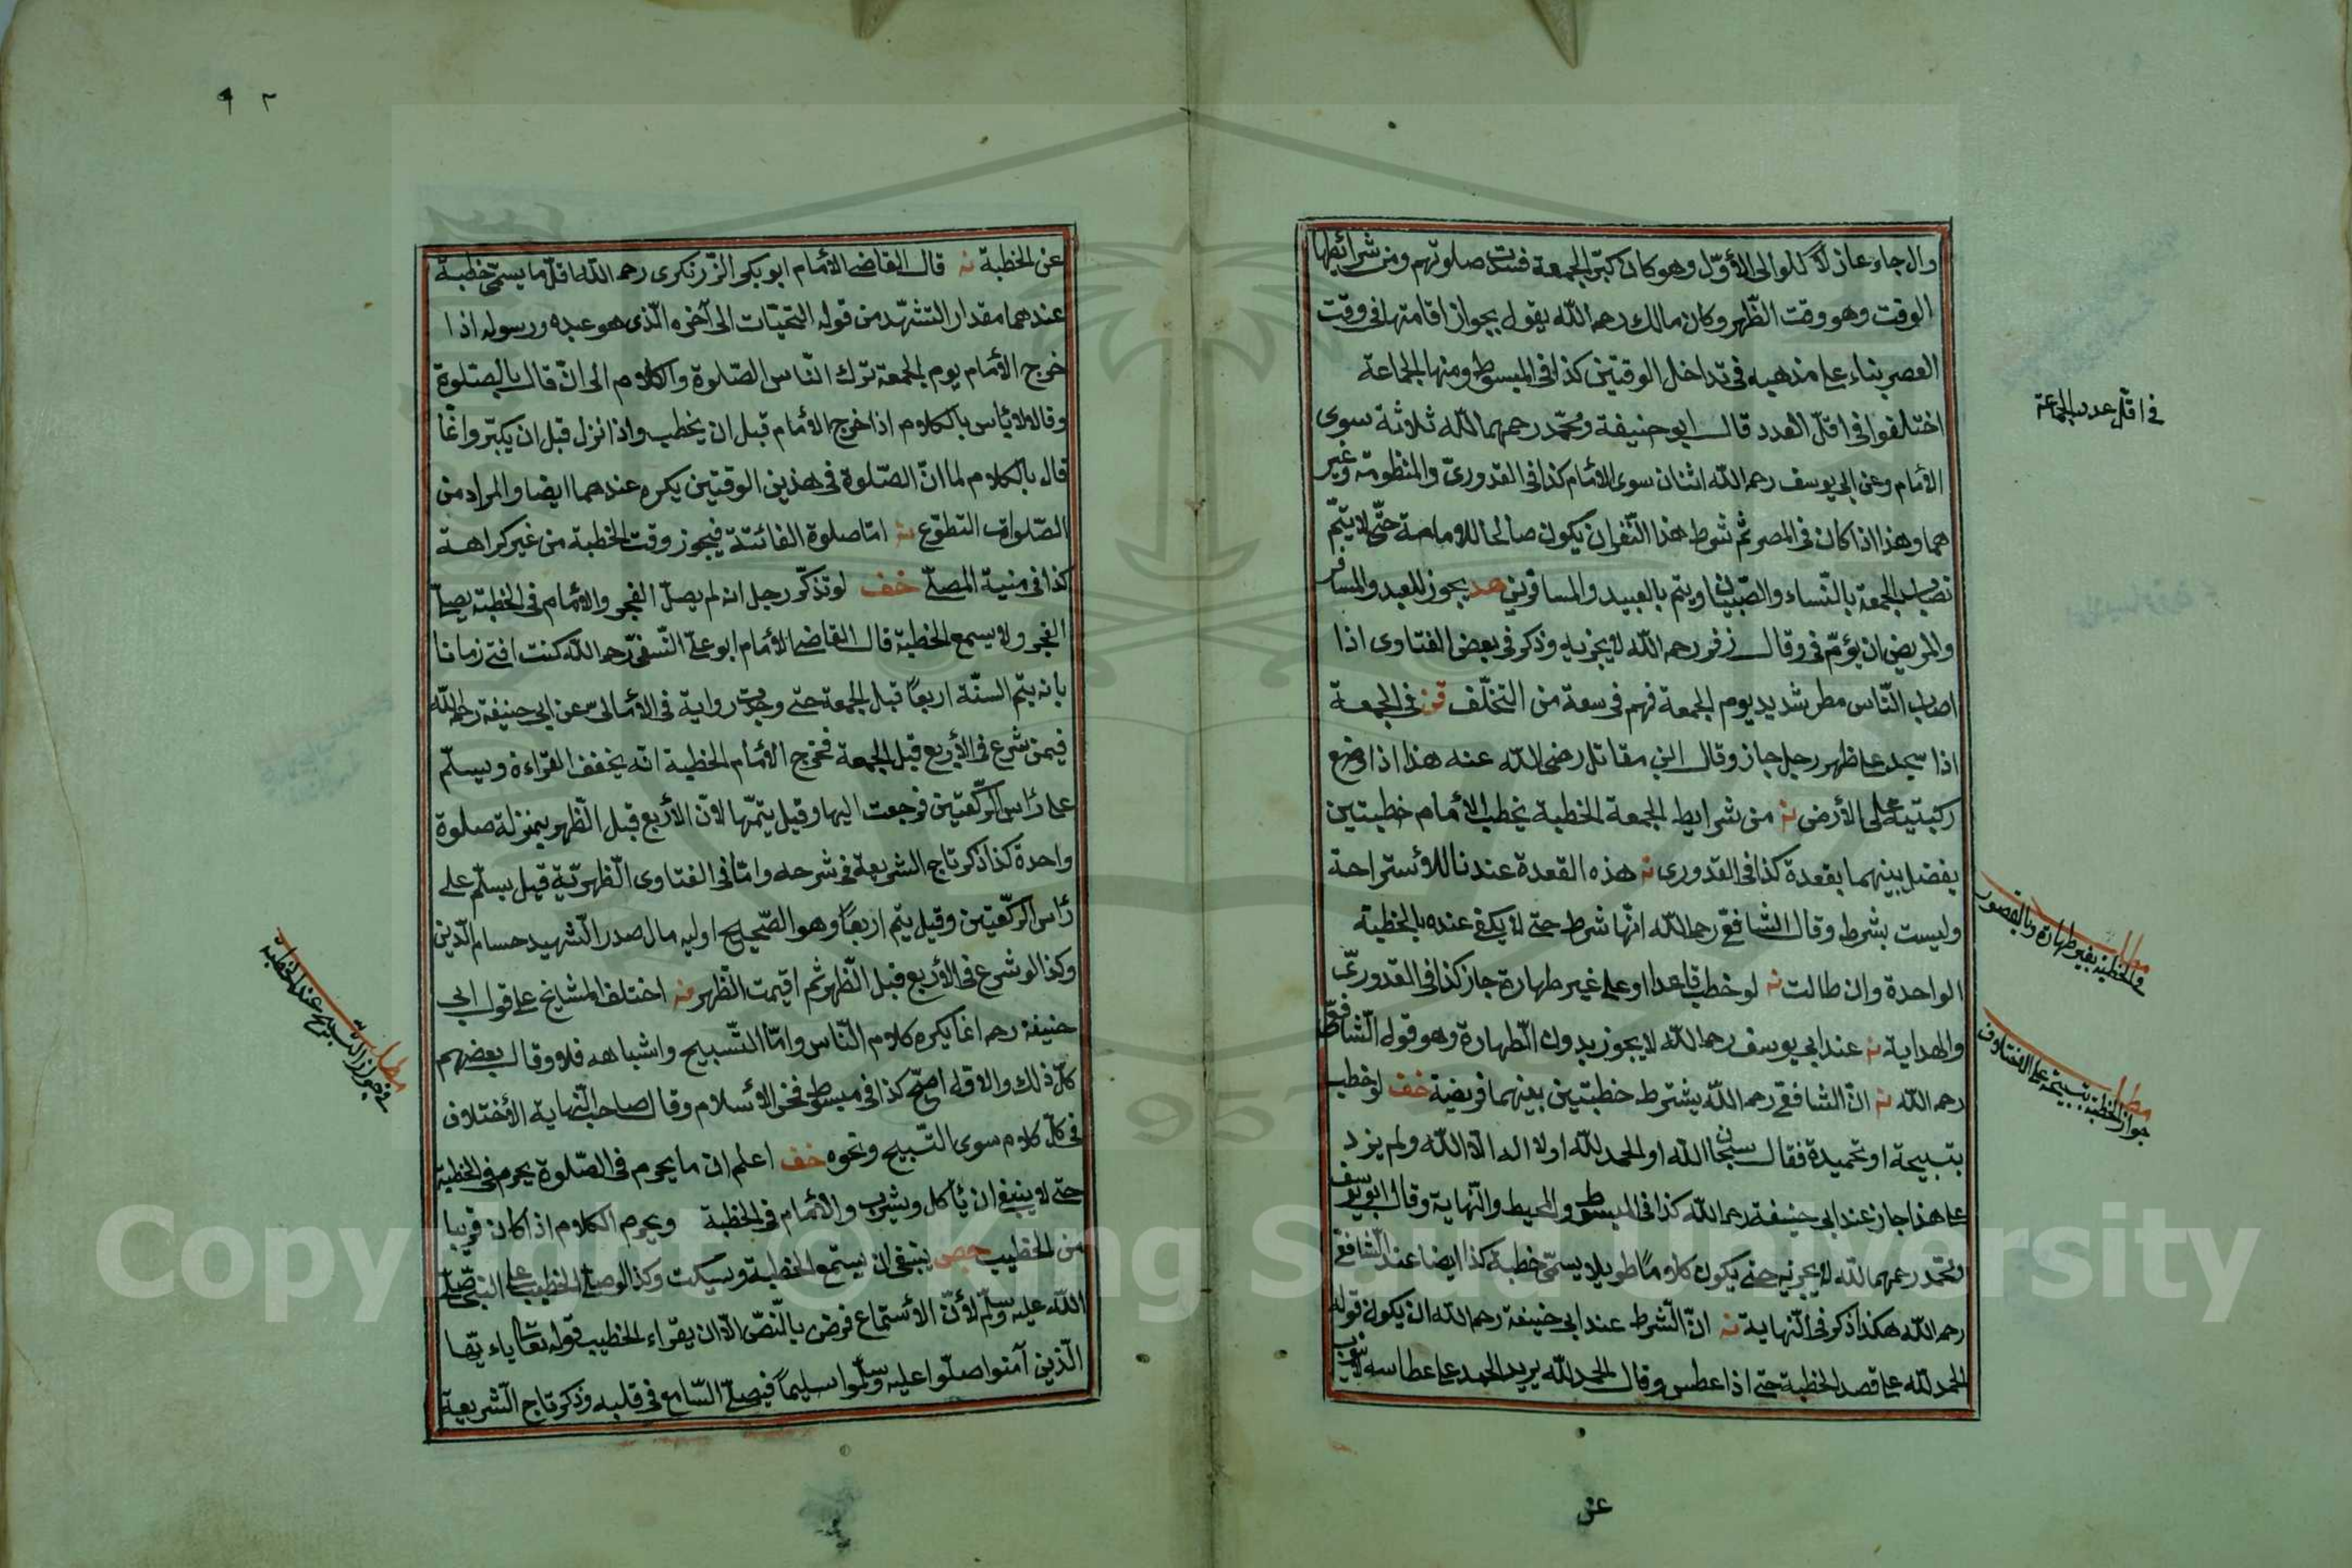 وال جاء عازلا للوالى الأوّل وهو كان كبّر الجمعة فسدت صلوتهم ومن شرائطها
الوقت وهو وقت الظّهر وكان مالك رحمه اللّه يقول بجواز اقامتها فى وقت
العصر بناء على مذهبه فى تداخل الوقتين كذا فى المبسوط ومنها الجماعة
فى اقلّ عدد الجماعة
اختلفوا فى اقلّ العدد قال ابو حنيفة ومحمّد رحمهما اللّه ثلاثة سوى
الأمام وعن ابى يوسف رحمه اللّه اثنان سوى الأمام كذا فى القدورىّ والمنظومة وغير
هما وهذا اذا كان فى المصر ثمّ شرط هذا النّفر ان يكون صالحا للامامة حتّى لا يتمّ
نصاب الجمعة بالنّساء والصّبيان ويتم بالعبيد والمسافرين هد يجوز للعبد والمسافر
والمريض ان يؤمّ فى وقال زفر رحمه اللّه لا يجزيه وذكر فى بعض الفتاوى اذا
اصاب النّاس مطر شديد يوم الجمعة فهم فى سعة من التخلّف فن فى الجمعة
اذا سجد على ظهر رجل جاز وقال ابن مقاتل رضى اللّه عنه هذا اذا وضع
ركبتيه على الأرض نه من شرايط الجمعة الخطبة يخطب الأمام خطبتين
يفصل بينهما بقعدة كذا فى القدورى نه هذه القعدة عندنا للأستراحة
وليست بشرط وقال الشافعىّ رحمه اللّه انّها شرط حتى لا يكفى عنده بالخطبة
مطلب
فى الخطبة بغير طهارة وبالقصور
الواحدة وان طالت نه لو خطب قاعدا او على غير طهارة جاز كذا فى القدورىّ
والهداية نه عند ابى يوسف رحمه اللّه لا يجوز بدون الطّهارة وهو قول الشّافعىّ
رحمه اللّه نه انّ الشافعى رحمه اللّه يشترط خطبتين بينهما فريضة خف لو خطب
مطلب
جواز الخطبة بتسبيحة على الاختلاف
بتسبيحة او تحميدة فقال سبحان اللّه او الحمد للّه او لا اله الّا اللّه ولم يزد
على هذا جاز عند ابى حنيفة رحمه اللّه كذا فى المبسوط والمحيط والنّهاية وقال ابو يوسف
ومحمّد رحمهما اللّه لا يجزيه حتى يكون كلاما طويلا يسمّى خطبة كذا ايضا عند الشّافعى
رحمه اللّه هكذا ذكر فى النّهاية نه انّ الشّرط عند ابى حنيفة رحمه اللّه ان يكون قوله
الحمد للّه على قصد الخطبة حتى اذا عطس وقال الحمد للّه يريد الحمد على عطاسه لا ينوب
عن
٩٢
عن الخطبة نه قال القاضى الأمام ابو بكر الزّرنكرى رحمه اللّه اقلّ ما يسمّى خطبة
عندهما مقدار التشهّد من قوله التحيّات الى آخره الّذى هو عبده ورسوله اذا
خرج الأمام يوم الجمعة ترك النّاس الصّلوة والكلام الى انّ قال بالصّلوة
وقالا لا بأس بالكلام اذا خرج الأمام قبل ان يخطب واذا نزل قبل ان يكبّر وانّما
قال بالكلام لما انّ الصّلوة فى هذين الوقتين يكره عندهما ايضا والمراد من
الصّلوات التطوّع نه امّا صلوة الفائتة فيجوز وقت الخطبة من غير كراهة
كذا فى منية المصلّى خف لو تذكّر رجل انه لم يصلّ الفجر والأمام فى الخطبة يصلّى
الفجر ولا يسمع الخطبة قال القاضى الأمام ابو على النّسفىّ رحمه اللّه كنت افتى زمانا
بانه يتم السنّة اربعا قبل الجمعة حتى وجدت رواية فى الأمالى عن ابى حنيفة رحمه اللّه
فيمن شرع فى الأربع قبل الجمعة فخرج الأمام للخطبة انّه يخفف القراءة ويسلّم
على رأس الرّكعتين فرجعت اليها وقيل يتمّها لأنّ الأربع قبل الظّهر بمنزلة صلوة
واحدة كذا ذكر تاج الشريعة فى شرحه وامّا فى الفتاوى الظّهريّة قيل يسلّم على
رأس الرّكعتين وقيل يتم اربعا وهو الصّحيح اوليه مال صدر الشهيد حسام الدّين
وكذا لو شرع فى الأربع قبل الظّهر ثم اقيمت الظّهر منه اختلف المشايخ على قول ابى
مطلب
فى جواز التسبيح عند الخطبة
حنيفة رحمه انّما يكره كلام النّاس وامّا التّسبيح واشباهه فلا وقال بعضهم
كلّ ذلك والاوّل اصحّ كذا فى مبسوط فخر الأسلام وقال صاحب النّهاية الأختلاف
فى كلّ كلام سوى التّسبيح ونحوه خف اعلم ان ما يحرم فى الصّلوة يحرم فى الخطبة
حتى لا ينبغى ان يأكل ويشرب والأمام فى الخطبة ويحرم الكلام اذا كان قريبا
من الخطيب حص ينبغى ان يستمع الخطبة ويسكت وكذا لو صلّى الخطيب على النبىّ صلّى
اللّه عليه وسلّم لأنّ الأستماع فرض بالنّصّ الّا ان يقراء الخطيب قوله تعالى ياء يّها
الّذين آمنوا صلّوا عليه وسلّموا تسليما فيصلّى السّامع فى قلبه وذكر تاج الشّريعة
Copyright © King Saud University
1957